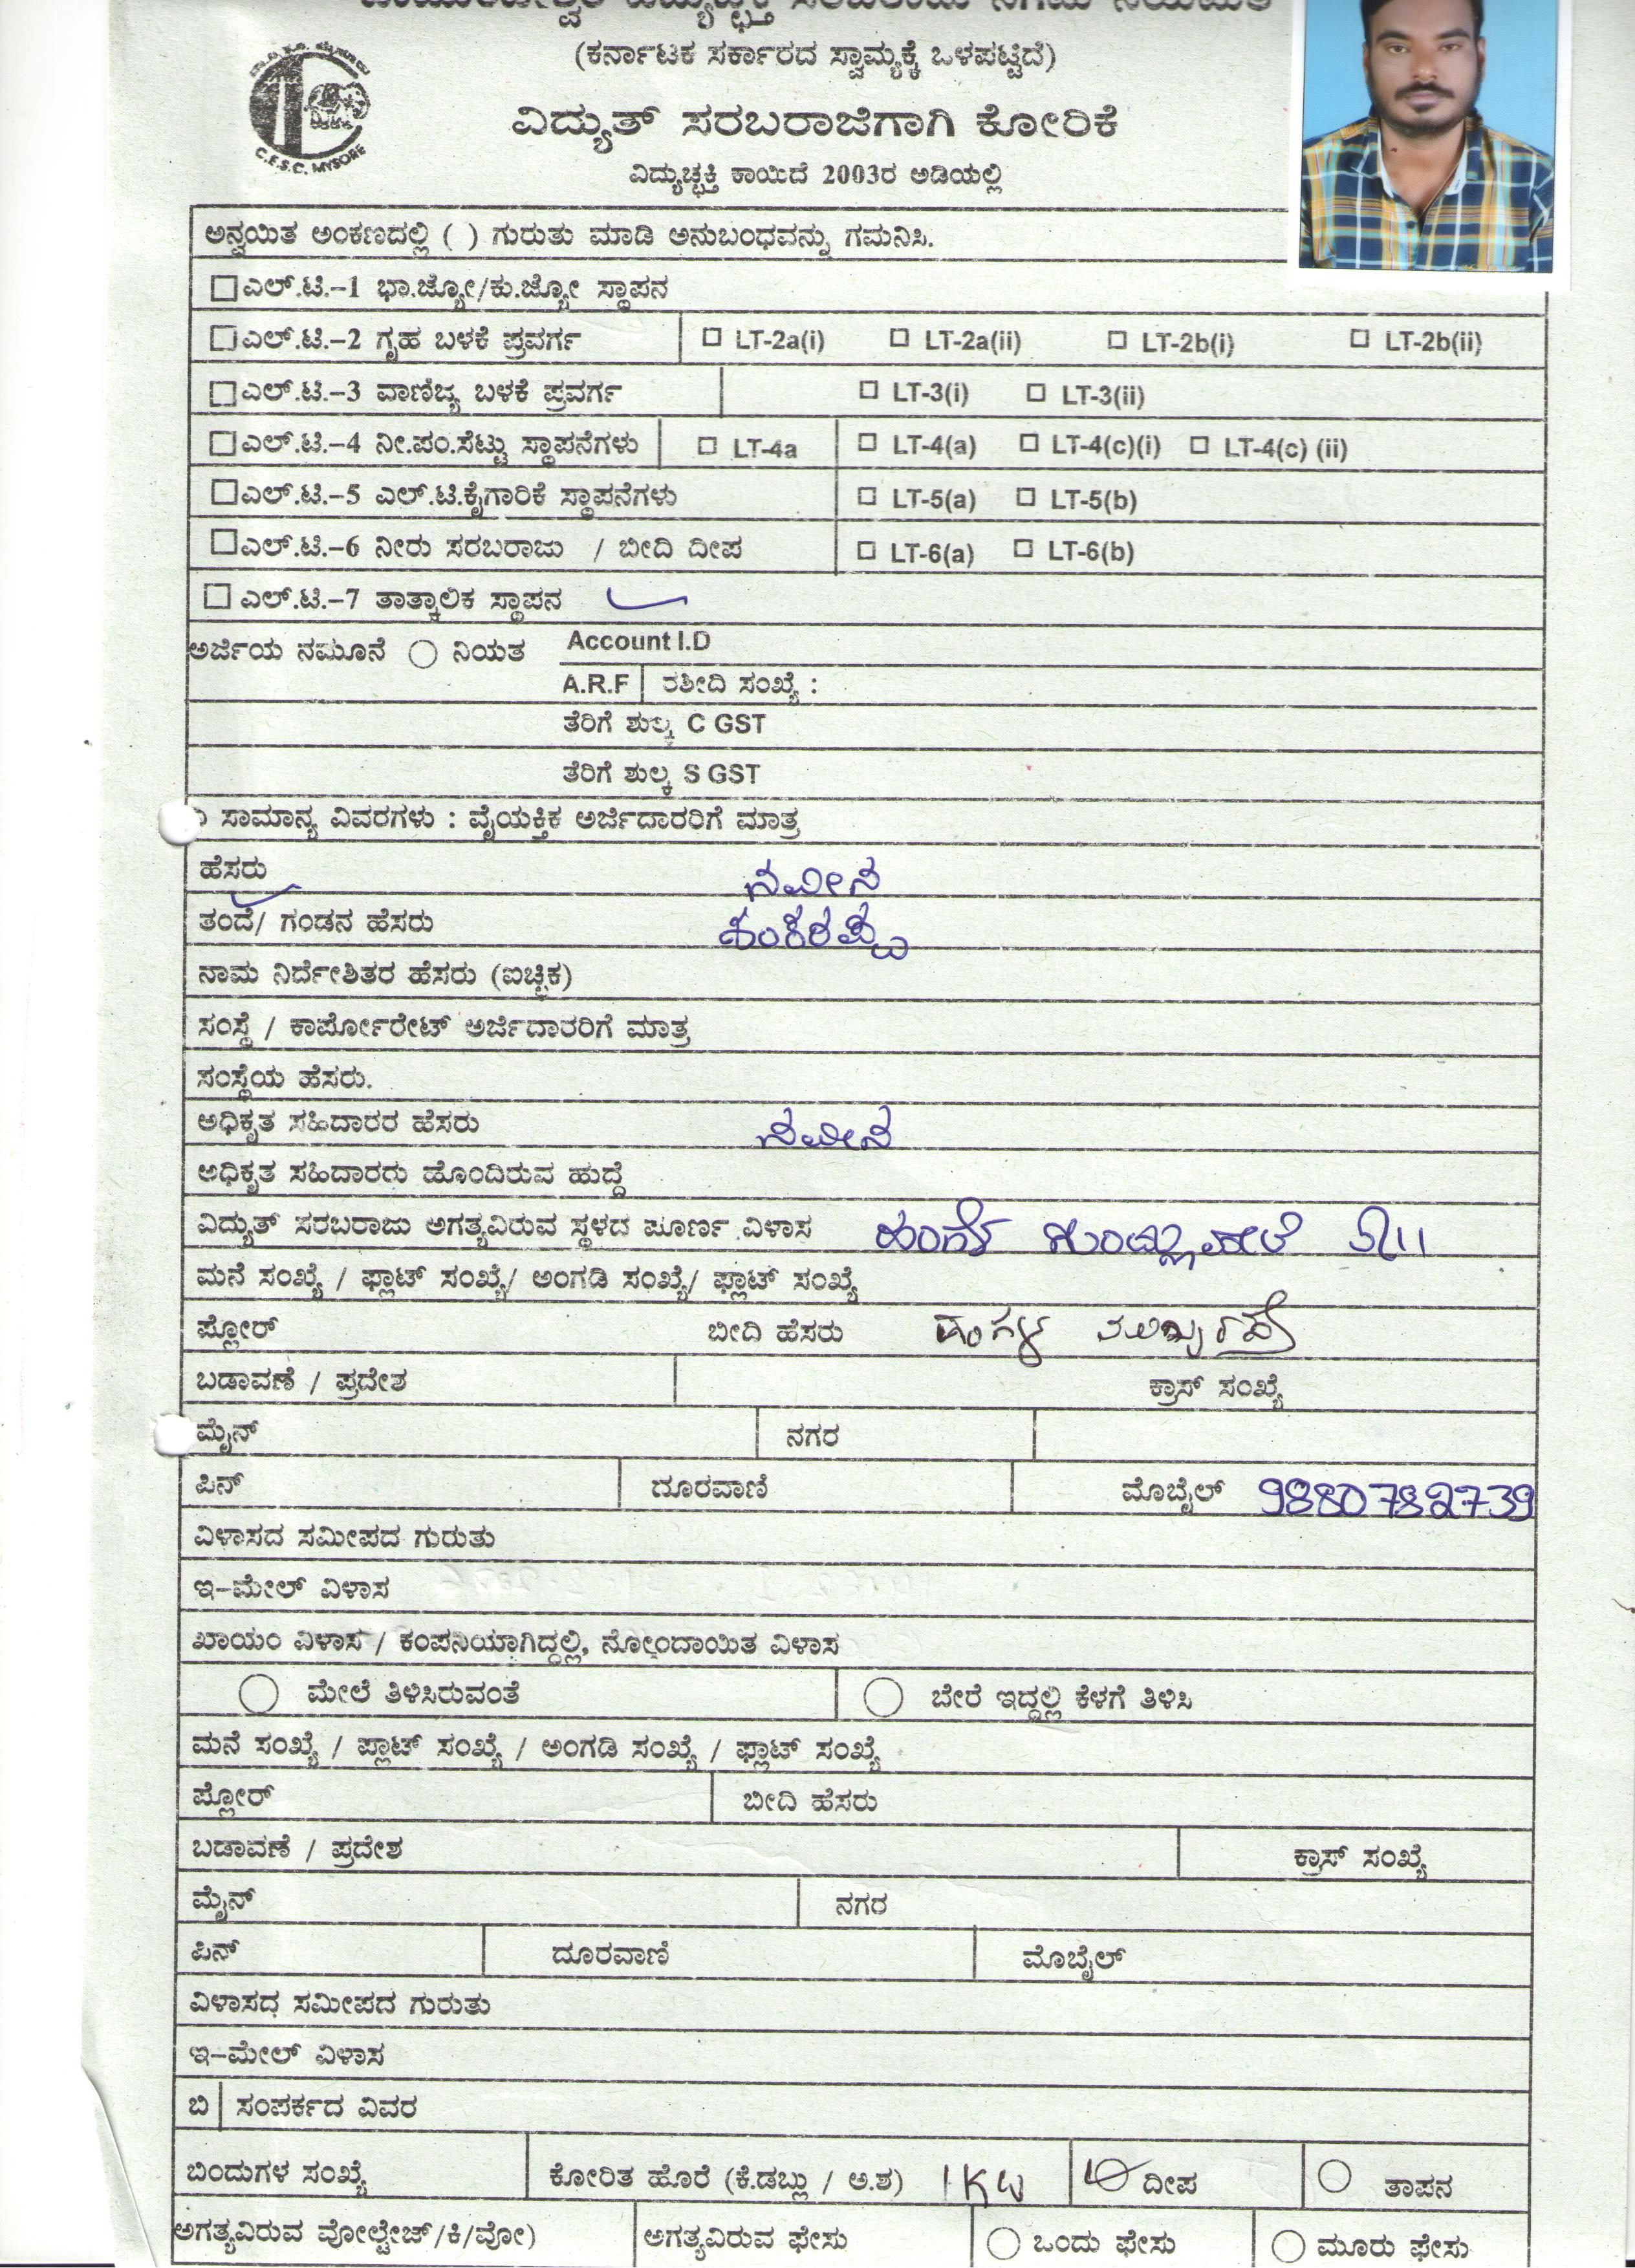 (ಕರ್ನಾಟಕ ಸರ್ಕಾರದ ಸ್ವಾಮ್ಯಕ್ಕೆ ಒಳಪಟ್ಟಿದೆ)
C.E.S.C. MYSORE
ವಿದ್ಯುತ್ ಸರಬರಾಜಿಗಾಗಿ ಕೋರಿಕೆ
ವಿದ್ಯುಚ್ಛಕ್ತಿ ಕಾಯಿದೆ 2003ರ ಅಡಿಯಲ್ಲಿ
ಅನ್ವಯಿತ ಅಂಕಣದಲ್ಲಿ ( ) ಗುರುತು ಮಾಡಿ ಅನುಬಂಧವನ್ನು ಗಮನಿಸಿ.
ಎಲ್.ಟಿ.-1 ಭಾ.ಜ್ಯೋ/ಕು.ಜ್ಯೋ ಸ್ಥಾಪನ
ಎಲ್.ಟಿ.-2 ಗೃಹ ಬಳಕೆ ಪ್ರವರ್ಗ LT-2a(i) LT-2a(ii) LT-2b(i) LT-2b(ii)
ಎಲ್.ಟಿ.-3 ವಾಣಿಜ್ಯ ಬಳಕೆ ಪ್ರವರ್ಗ LT-3(i) LT-3(ii)
ಎಲ್.ಟಿ.-4 ನೀ.ಪಂ.ಸೆಟ್ಟು ಸ್ಥಾಪನೆಗಳು LT-4a LT-4(a) LT-4(c)(i) LT-4(c) (ii)
ಎಲ್.ಟಿ.-5 ಎಲ್.ಟಿ.ಕೈಗಾರಿಕೆ ಸ್ಥಾಪನೆಗಳು LT-5(a) LT-5(b)
ಎಲ್.ಟಿ.-6 ನೀರು ಸರಬರಾಜು / ಬೀದಿ ದೀಪ LT-6(a) LT-6(b)
ಎಲ್.ಟಿ.-7 ತಾತ್ಕಾಲಿಕ ಸ್ಥಾಪನ
ಅರ್ಜಿಯ ನಮೂನೆ ನಿಯತ Account I.D
A.R.F ರಶೀದಿ ಸಂಖ್ಯೆ :
ತೆರಿಗೆ ಶುಲ್ಕ C GST
ತೆರಿಗೆ ಶುಲ್ಕ S GST
ಸಾಮಾನ್ಯ ವಿವರಗಳು : ವೈಯಕ್ತಿಕ ಅರ್ಜಿದಾರರಿಗೆ ಮಾತ್ರ
ಹೆಸರು ನವೀನ
ತಂದೆ/ ಗಂಡನ ಹೆಸರು ಶಂಕರಪ್ಪ
ನಾಮ ನಿರ್ದೇಶಿತರ ಹೆಸರು (ಐಚ್ಛಿಕ)
ಸಂಸ್ಥೆ / ಕಾರ್ಪೋರೇಟ್ ಅರ್ಜಿದಾರರಿಗೆ ಮಾತ್ರ
ಸಂಸ್ಥೆಯ ಹೆಸರು.
ಅಧಿಕೃತ ಸಹಿದಾರರ ಹೆಸರು ನವೀನ
ಅಧಿಕೃತ ಸಹಿದಾರರು ಹೊಂದಿರುವ ಹುದ್ದೆ
ವಿದ್ಯುತ್ ಸರಬರಾಜು ಅಗತ್ಯವಿರುವ ಸ್ಥಳದ ಪೂರ್ಣ ವಿಳಾಸ
ಮನೆ ಸಂಖ್ಯೆ / ಫ್ಲಾಟ್ ಸಂಖ್ಯೆ/ ಅಂಗಡಿ ಸಂಖ್ಯೆ/ ಫ್ಲಾಟ್ ಸಂಖ್ಯೆ
ಫ್ಲೋರ್ ಬೀದಿ ಹೆಸರು
ಬಡಾವಣೆ / ಪ್ರದೇಶ ಕ್ರಾಸ್ ಸಂಖ್ಯೆ
ಮೈನ್ ನಗರ
ಪಿನ್ ದೂರವಾಣಿ ಮೊಬೈಲ್ 9880782739
ವಿಳಾಸದ ಸಮೀಪದ ಗುರುತು
ಇ-ಮೇಲ್ ವಿಳಾಸ
ಖಾಯಂ ವಿಳಾಸ / ಕಂಪನಿಯಾಗಿದ್ದಲ್ಲಿ, ನೋಂದಾಯಿತ ವಿಳಾಸ
ಮೇಲೆ ತಿಳಿಸಿರುವಂತೆ ಬೇರೆ ಇದ್ದಲ್ಲಿ ಕೆಳಗೆ ತಿಳಿಸಿ
ಮನೆ ಸಂಖ್ಯೆ / ಪ್ಲಾಟ್ ಸಂಖ್ಯೆ / ಅಂಗಡಿ ಸಂಖ್ಯೆ / ಫ್ಲಾಟ್ ಸಂಖ್ಯೆ
ಫ್ಲೋರ್ ಬೀದಿ ಹೆಸರು
ಬಡಾವಣೆ / ಪ್ರದೇಶ ಕ್ರಾಸ್ ಸಂಖ್ಯೆ
ಮೈನ್ ನಗರ
ಪಿನ್ ದೂರವಾಣಿ ಮೊಬೈಲ್
ವಿಳಾಸದ ಸಮೀಪದ ಗುರುತು
ಇ-ಮೇಲ್ ವಿಳಾಸ
ಬಿ ಸಂಪರ್ಕದ ವಿವರ
ಬಿಂದುಗಳ ಸಂಖ್ಯೆ ಕೋರಿತ ಹೊರೆ (ಕೆ.ಡಬ್ಲು / ಅ.ಶ) 1KW ದೀಪ ತಾಪನ
ಅಗತ್ಯವಿರುವ ವೋಲ್ಟೇಜ್/ಕಿ/ವೋ) ಅಗತ್ಯವಿರುವ ಫೇಸು ಒಂದು ಫೇಸು ಮೂರು ಫೇಸು